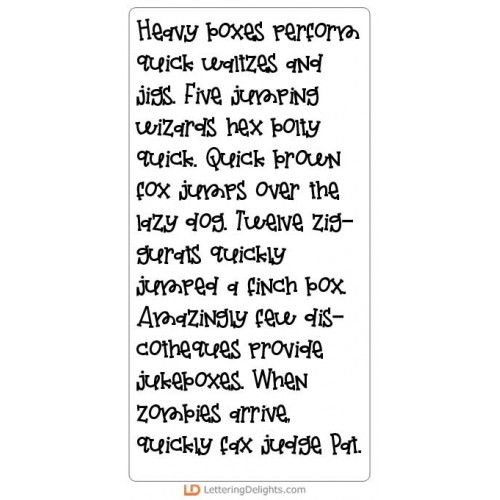 Heavy boxes perform
quick waltzes and
jigs. Five jumping
wizards hex bolty
quick. Quick brown
fox jumps over the
lazy dog. Twelve zig-
gurats quickly
jumped a finch box.
Amazingly few dis-
cotheques provide
jukeboxes. When
zombies arrive,
quickly fax judge Pat.
LD LetteringDelights.com